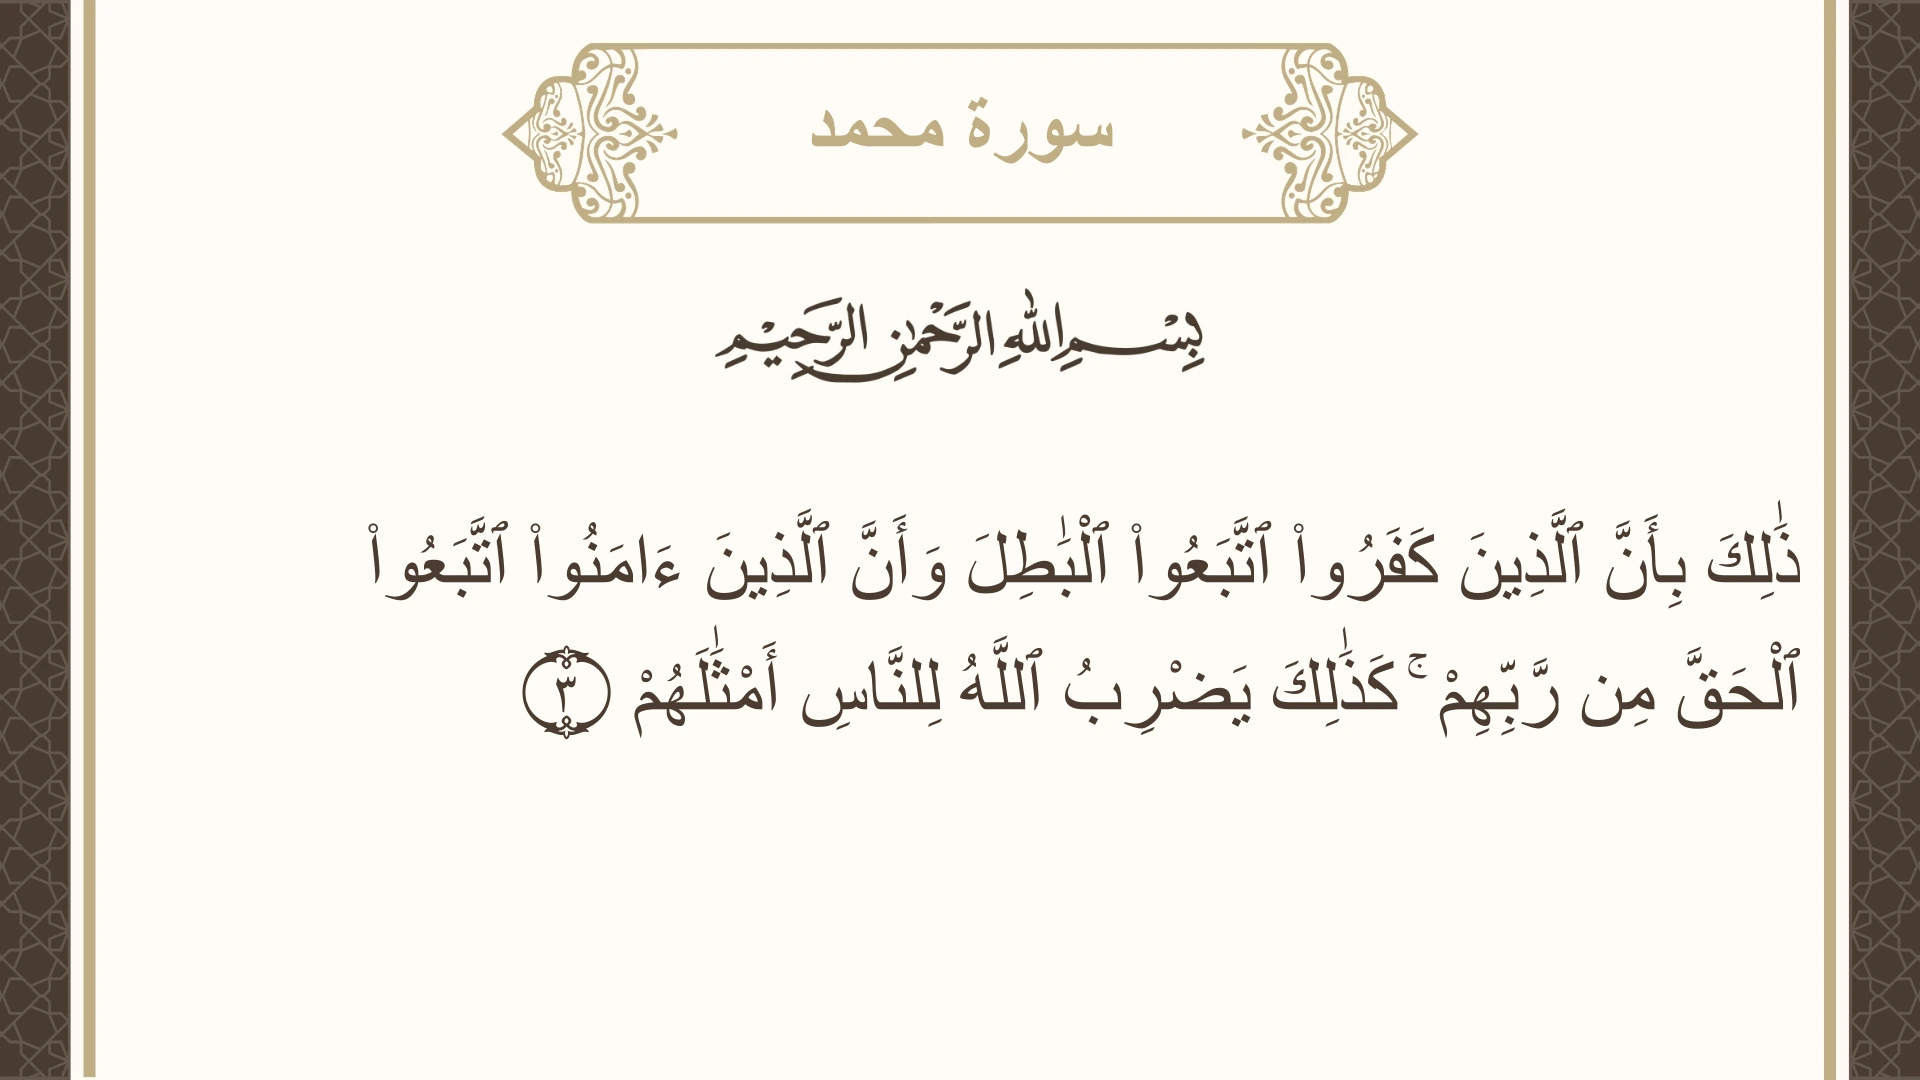 سورة محمد
بِسْمِ اللهِ الرَّحْمٰنِ الرَّحِيْمِ
ذَٰلِكَ بِأَنَّ ٱلَّذِينَ كَفَرُوا۟ ٱتَّبَعُوا۟ ٱلْبَـٰطِلَ وَأَنَّ ٱلَّذِينَ ءَامَنُوا۟ ٱتَّبَعُوا۟
ٱلْحَقَّ مِن رَّبِّهِمْ ۚ كَذَٰلِكَ يَضْرِبُ ٱللَّهُ لِلنَّاسِ أَمْثَـٰلَهُمْ ٣